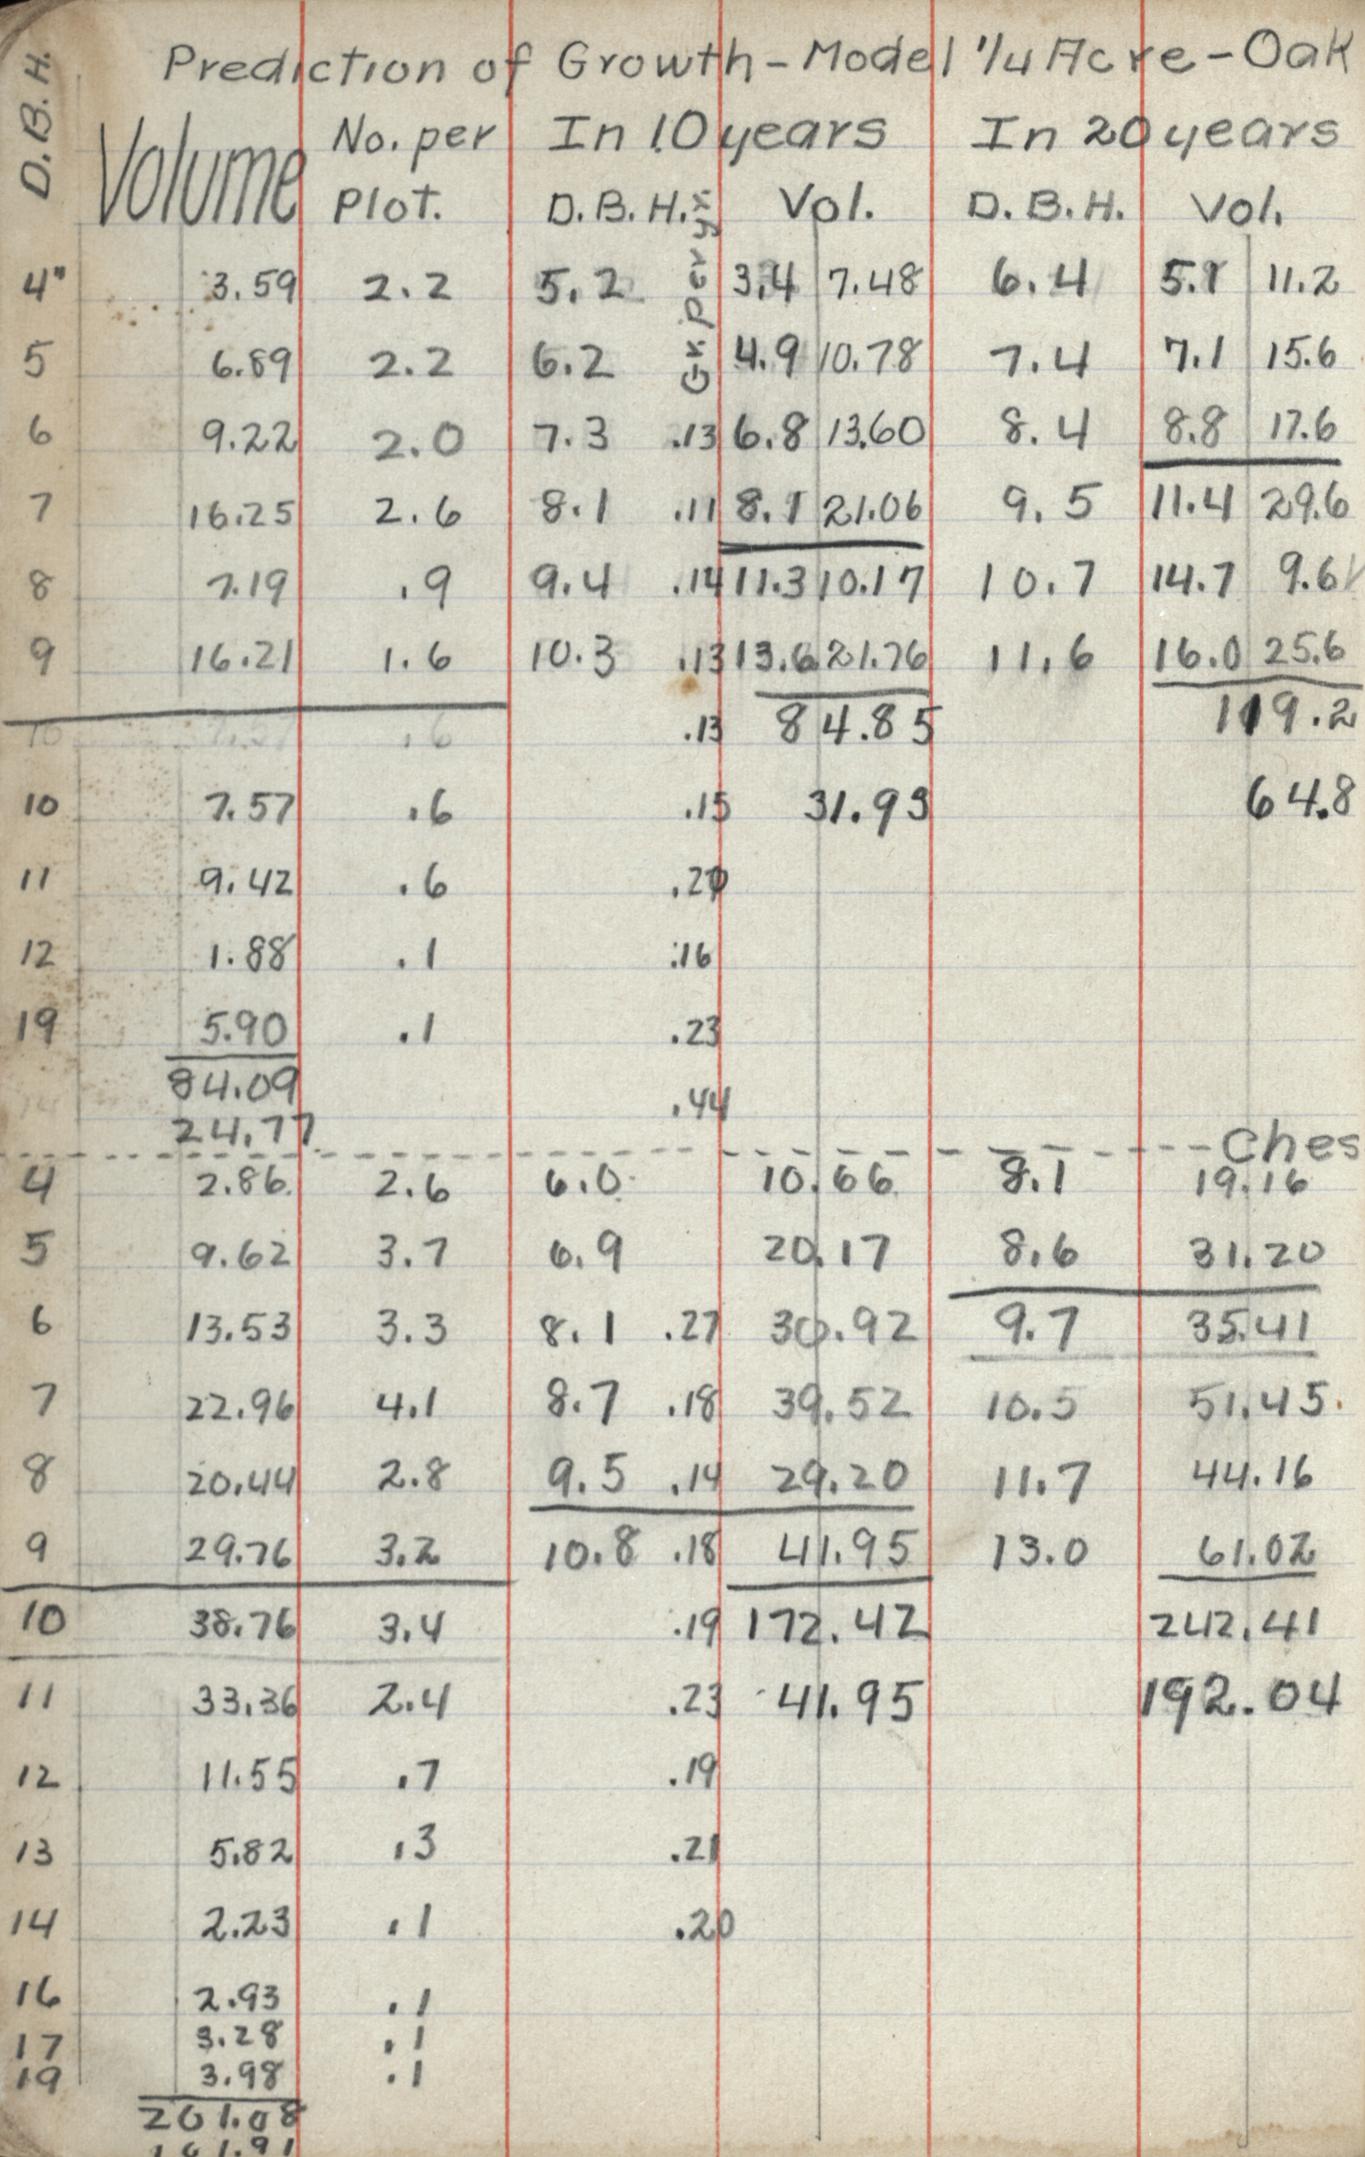 Prediction of Growth - Model 1/4 Acre - Oak
D.B.H. Volume No. per Plot. In 10 years In 20 years
D.B.H. Gr. per yr. Vol. D.B.H. Vol.
4" 3.59 2.2 5.2 3.4 7.48 6.4 5.1 11.2
5 6.89 2.2 6.2 4.9 10.78 7.4 7.1 15.6
6 9.22 2.0 7.3 .13 6.8 13.60 8.4 8.8 17.6
7 16.25 2.6 8.1 .11 8.1 21.06 9.5 11.4 29.6
8 7.19 .9 9.4 .14 11.3 10.17 10.7 14.7 9.6
9 16.21 1.6 10.3 .13 13.6 21.76 11.6 16.0 25.6
10 7.57 .6 .13 84.85 119.2
10 7.57 .6 .15 31.93 64.8
11 9.42 .6 .20
12 1.88 .1 .16
19 5.90 .1 .23
84.09
.44
24.77
Ches
4 2.86 2.6 6.0 10.66 8.1 19.16
5 9.62 3.7 6.9 20.17 8.6 31.20
6 13.53 3.3 8.1 .27 30.92 9.7 35.41
7 22.96 4.1 8.7 .18 39.52 10.5 51.45
8 20.44 2.8 9.5 .14 29.20 11.7 44.16
9 29.76 3.2 10.8 .18 41.95 13.0 61.02
10 38.76 3.4 .19 172.42 242.41
11 33.36 2.4 .23 41.95 192.04
12 11.55 .7 .19
13 5.82 .3 .21
14 2.23 .1 .20
16 2.93 .1
17 3.28 .1
19 3.98 .1
201.08